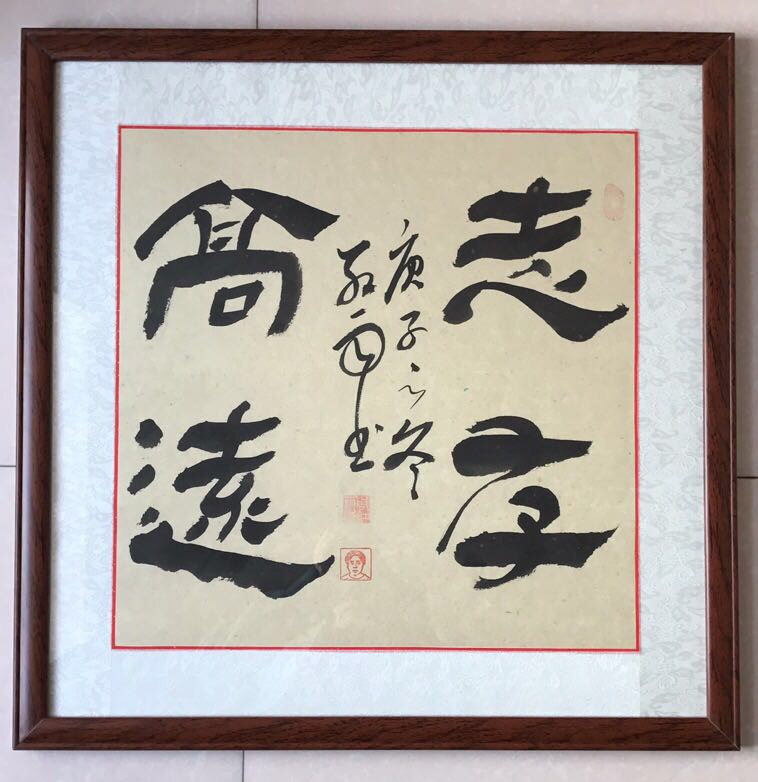 志存
高遠
庚子之冬
书